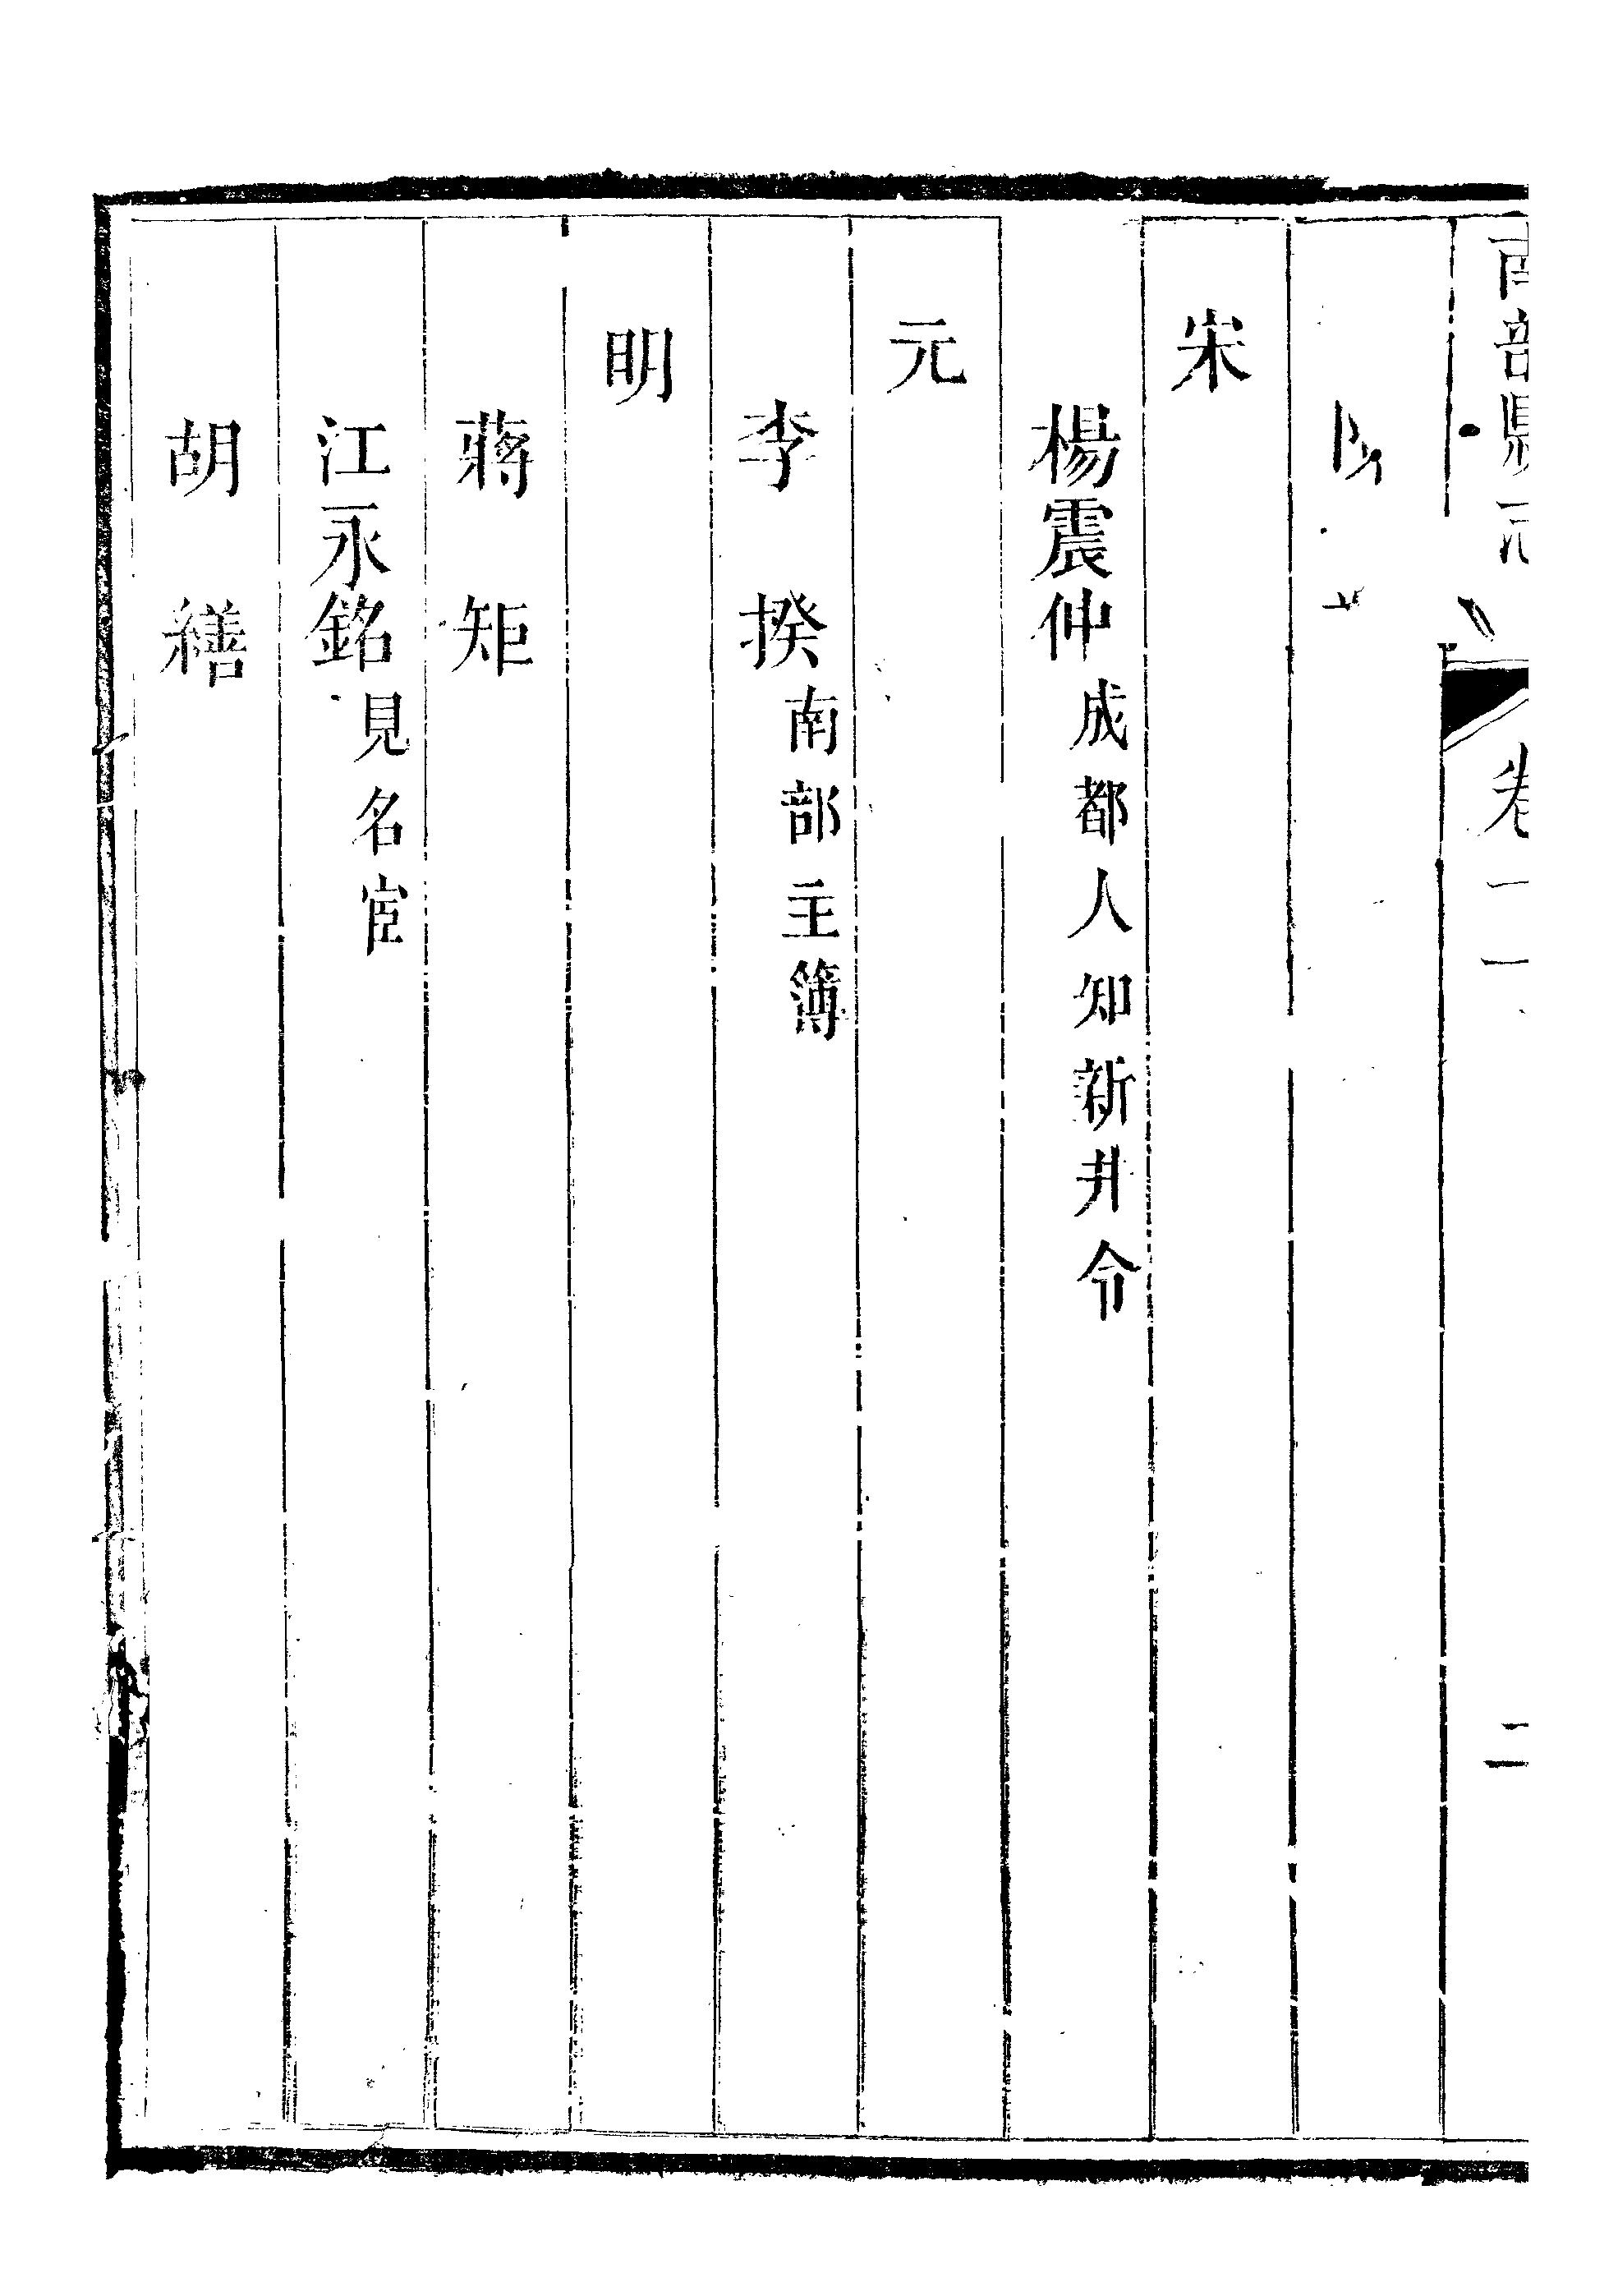 南部縣志 卷十一 二
宋
楊震仲 成都人知新井令
元
李揆 南部主簿
明
蔣矩
江永銘 見名宦
胡繕